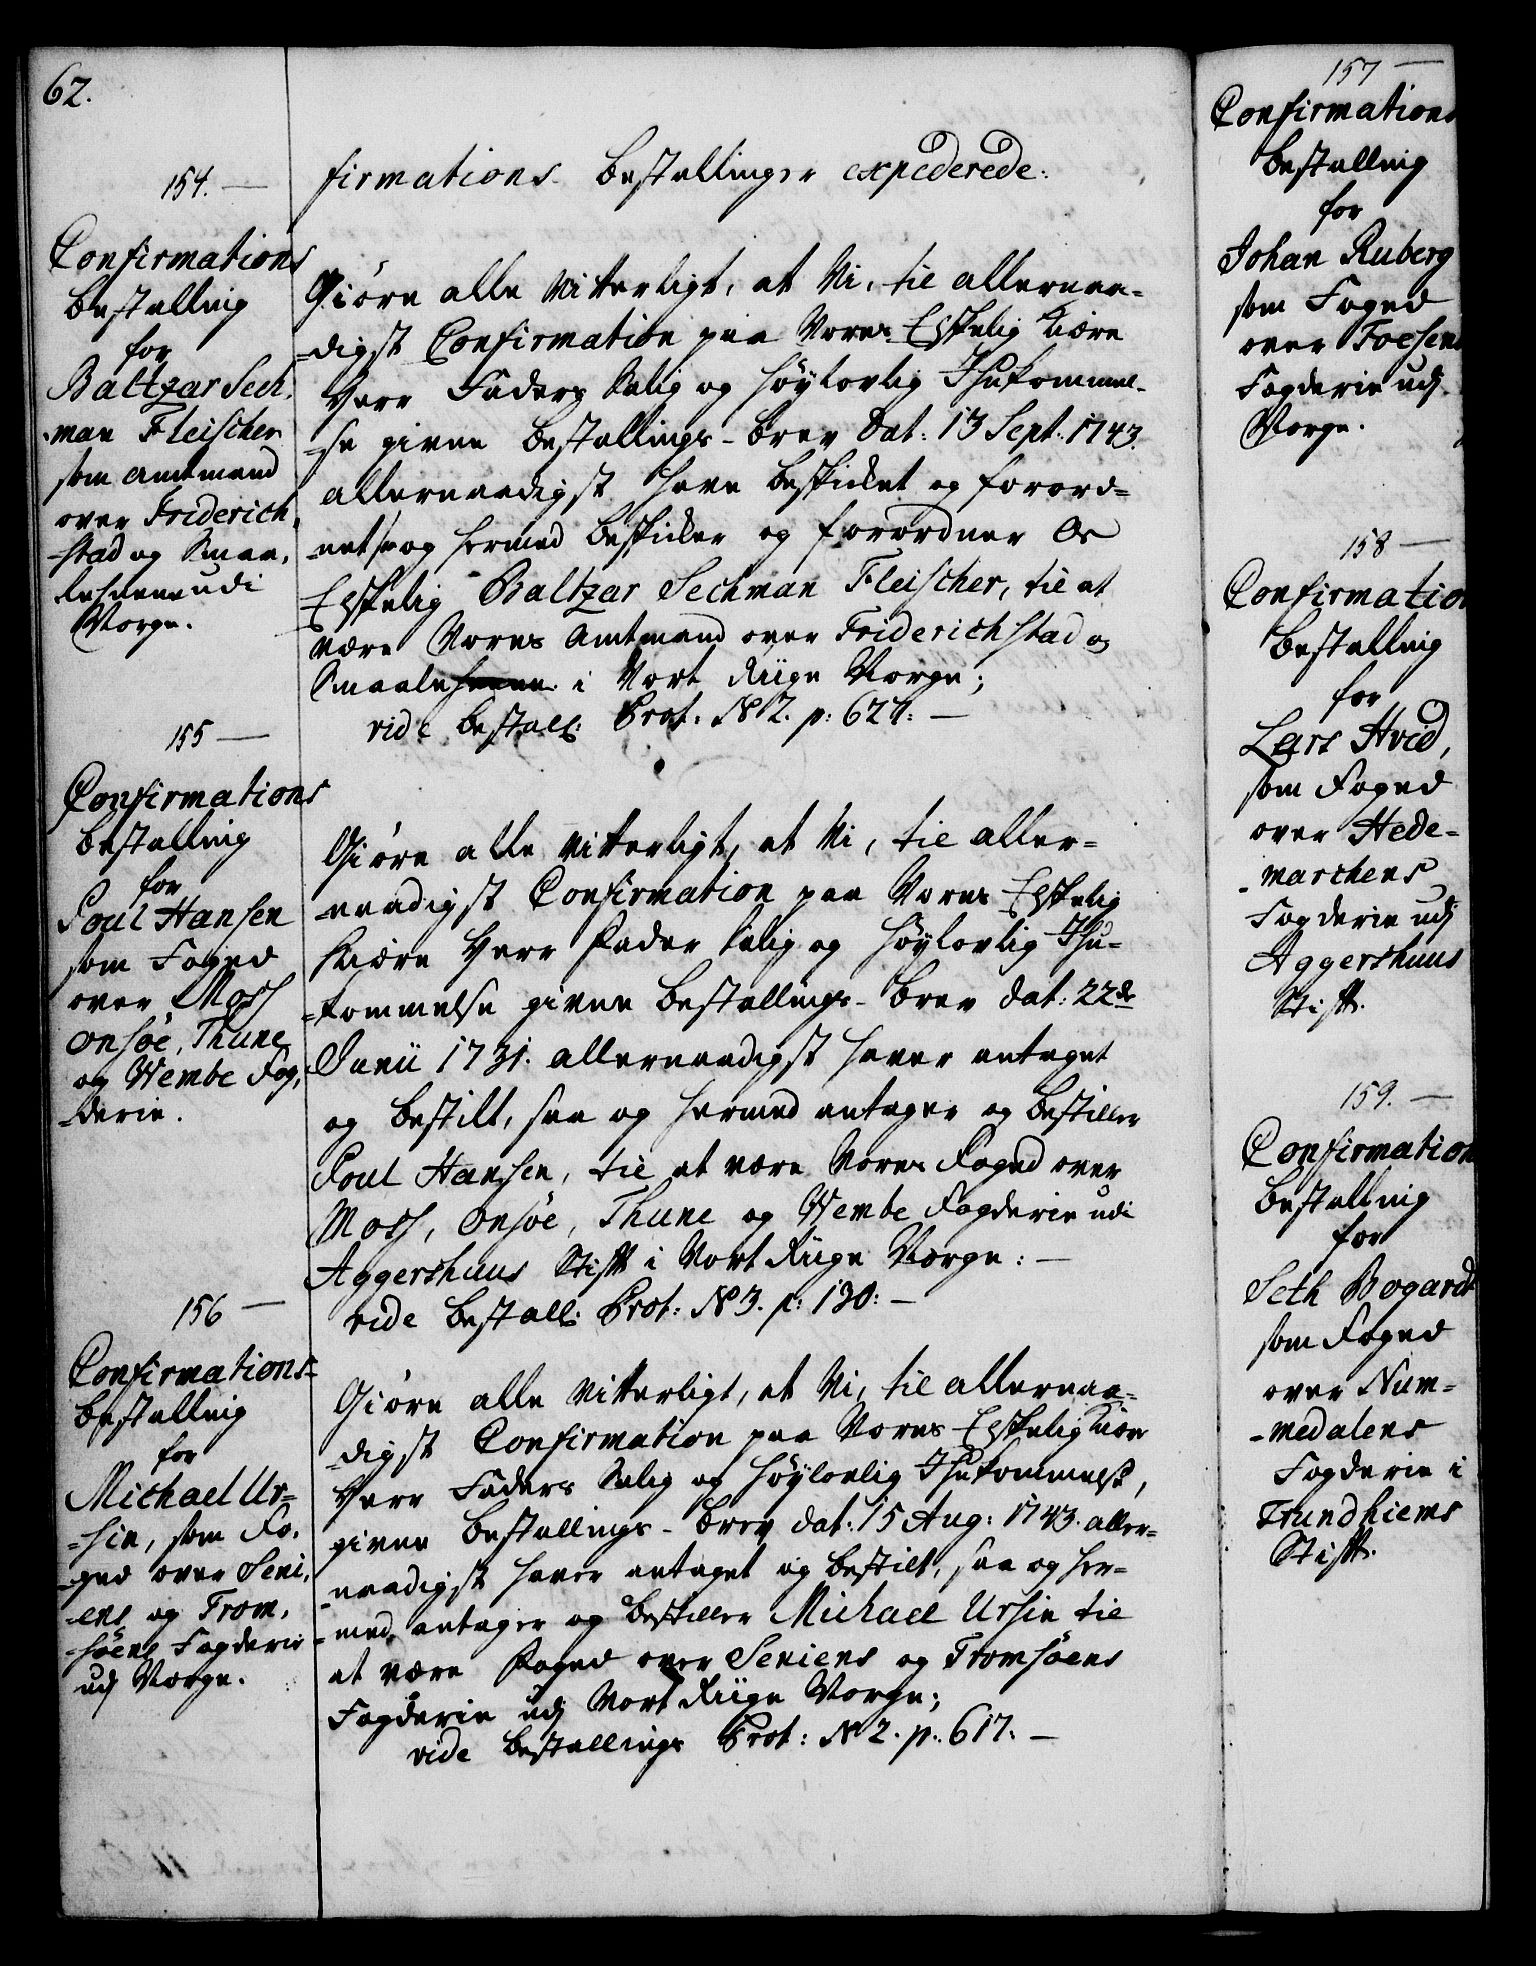 62.
firmations bestallinger expederede:
154. —
Confirmations
bestalling
for
Baltzar Sech,
-man Fleischer
som amtmand
over Friderich,
-stad og Smaa,
lehnene udi
Norge.
Giøre alle vitterligt, at Vi, til allernaa-
-digst Confirmation paa Vores Elskelig Kiære
Herr Faders Salig og Høylovlig Ihukommel-
-se givne bestallings-brev dat: 13 Sept: 1743.
allernaadigst have beskicket og forord-
-net, saa og hermed beskicker og forordner Os
Elskelig Baltzar Sechman Fleischer, til at
være Vores amtmand over Friderichstad og
Smaalehnene i Vort Riige Norge;
vide bestall: Prot: No 2. p: 627: —
155 —
Confirmations
bestalling
for
Poul Hansen
som Foged
over Moss
onsøe, Thune
og Wembe Fog,
-derie.
Giøre alle vitterligt, at Vi, til aller-
-naadigst Confirmation paa Vores Elskelig
Kiære Herr Fader Salig og Høylovlig Ihu-
-kommelse givne bestallings-brev dat: 22de
Junii 1731. allernaadigst haver antaget
og bestilt, saa og hermed antager og bestiller
Poul Hansen, til at være Vores Foged over
Moss, onsøe, Thune og Wembe Fogderie udi
Aggershuus Stift i Vort Riige Norge: —
vide bestall: Prot: No 3. p: 130: —
156 —
Confirmations-
bestalling
for
Michael Ur-
-sin, som Fo,
-ged over Seni,
-ens og Trom,
-søens Fogderie
udj Norge.
Giøre alle vitterligt, at Vi, til allernaa-
-digst Confirmation paa Vores Elskelig Kiære
Herr Faders Salig og Høylovlig Ihukommelse,
givne bestallings-brev dat: 15 Aug: 1743. aller-
-naadigst haver antaget og bestilt, saa og her-
-med antager og bestiller Michael Ursin til
at være Foged over Seniens og Tromsøens
Fogderie udj Vort Riige Norge;
vide bestallings Prot: No 2. p: 617. —
157 —
Confirmations
bestalling
for
Johan Ruberg
som Foged
over Foesens
Fogderie udj
Norge.
158 —
Confirmation
bestalling
for
Lars Hvid,
som Foged
over Hede-
-marchens
Fogderie udj
Aggershuus
Stift.
159. —
Confirmation
bestalling
for
Seth Bogardt
som Foged
over Num-
-medalens
Fogderie i
Trundhiems
Stift.